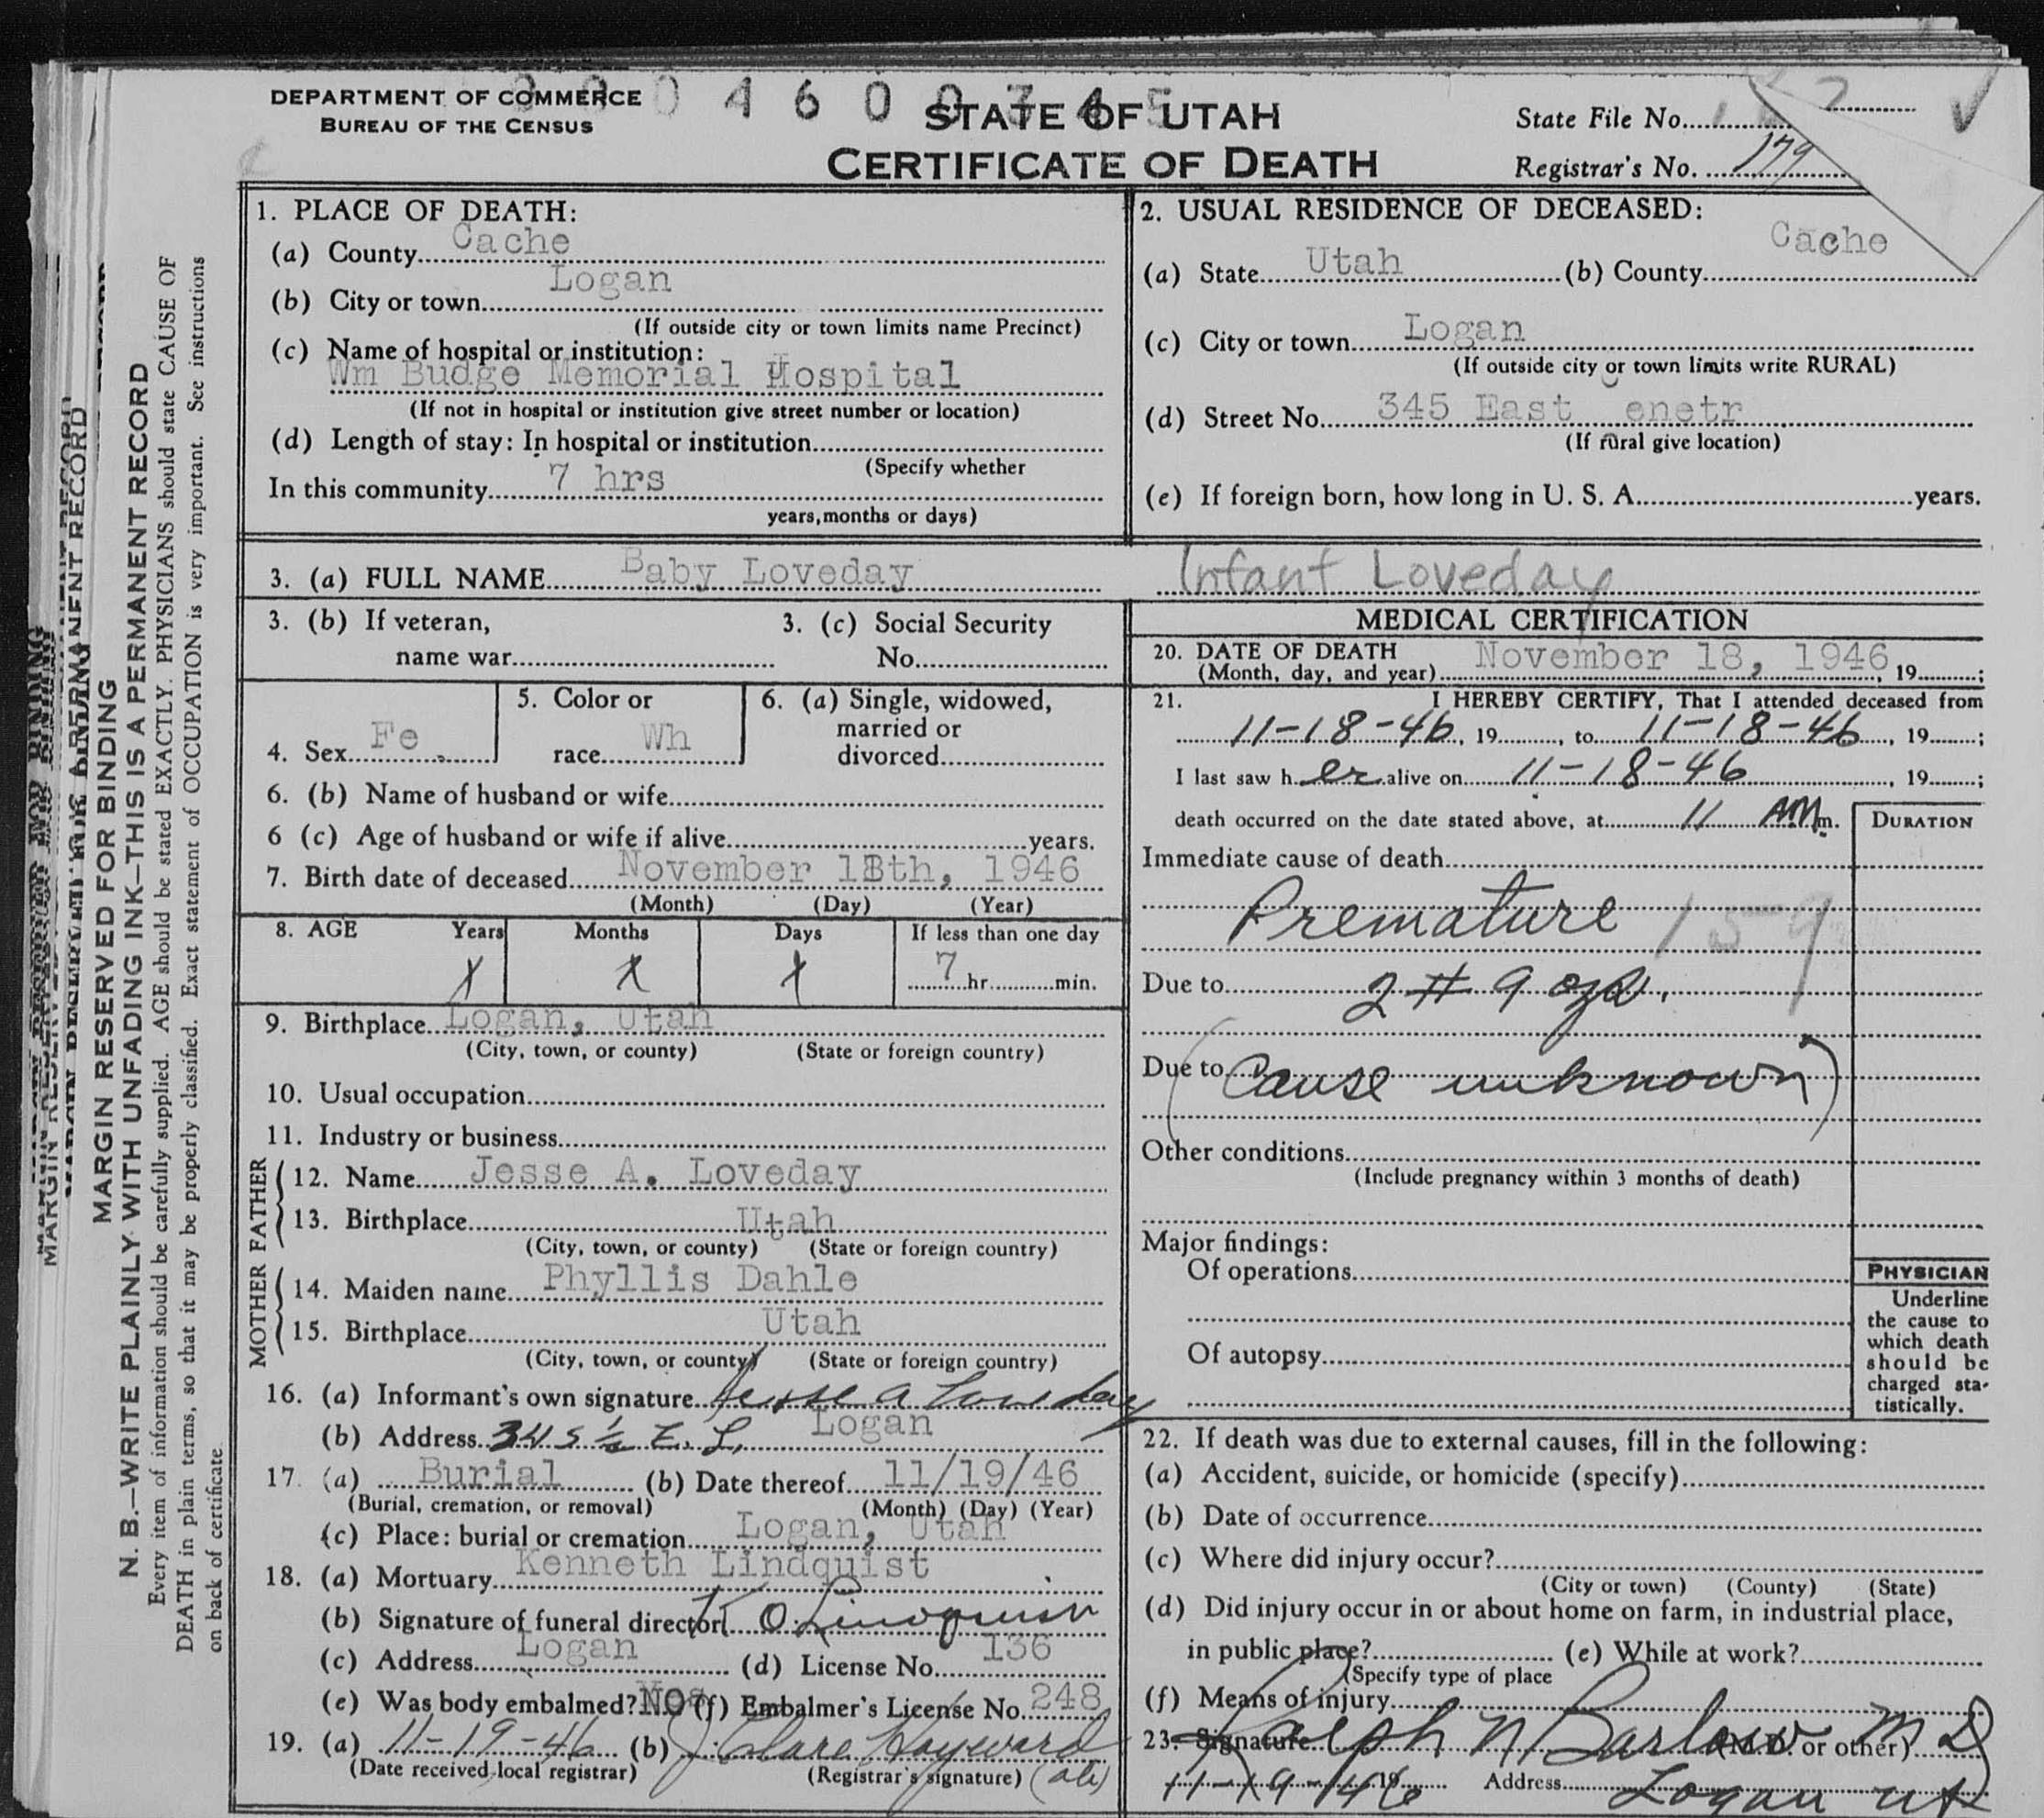 DEPARTMENT OF COMMERCE
BUREAU OF THE CENSUS
STATE OF UTAH
CERTIFICATE OF DEATH
State File No.
Registrar's No. 179
MARGIN RESERVED FOR BINDING
N. B.—WRITE PLAINLY WITH UNFADING INK—THIS IS A PERMANENT RECORD
Every item of information should be carefully supplied. AGE should be stated EXACTLY. PHYSICIANS should state CAUSE OF
DEATH in plain terms, so that it may be properly classified. Exact statement of OCCUPATION is very important. See instructions
on back of certificate.
1. PLACE OF DEATH:
(a) County Cache
(b) City or town Logan
(If outside city or town limits name Precinct)
(c) Name of hospital or institution:
Wm Budge Memorial Hospital
(If not in hospital or institution give street number or location)
(d) Length of stay: In hospital or institution
(Specify whether
In this community 7 hrs
years, months or days)
2. USUAL RESIDENCE OF DECEASED:
(a) State Utah (b) County Cache
(c) City or town Logan
(If outside city or town limits write RURAL)
(d) Street No. 345 East Cenetr
(If rural give location)
(e) If foreign born, how long in U. S. A. years.
3. (a) FULL NAME Baby Loveday Infant Loveday
3. (b) If veteran,
name war
3. (c) Social Security
No.
4. Sex Fe
5. Color or
race Wh
6. (a) Single, widowed,
married or
divorced
6. (b) Name of husband or wife
6 (c) Age of husband or wife if alive years.
7. Birth date of deceased November 18th, 1946
(Month) (Day) (Year)
8. AGE Years Months Days If less than one day
X X X 7 hr. min.
9. Birthplace Logan, Utah
(City, town, or county) (State or foreign country)
10. Usual occupation
11. Industry or business
FATHER
12. Name Jesse A. Loveday
13. Birthplace Utah
(City, town, or county) (State or foreign country)
MOTHER
14. Maiden name Phyllis Dahle
15. Birthplace Utah
(City, town, or county) (State or foreign country)
16. (a) Informant's own signature Jesse A Loveday
(b) Address 345 ½ E. Logan
17. (a) Burial (b) Date thereof 11/19/46
(Burial, cremation, or removal) (Month) (Day) (Year)
(c) Place: burial or cremation Logan, Utah
18. (a) Mortuary Kenneth Lindquist
(b) Signature of funeral director K O Lindquist
(c) Address Logan (d) License No. 136
(e) Was body embalmed? NO (f) Embalmer's License No. 248
19. (a) 11-19-46 (b) J. Clare Hayward
(Date received local registrar) (Registrar's signature)
MEDICAL CERTIFICATION
20. DATE OF DEATH
(Month, day, and year) November 18, 1946, 19 ;
21. I HEREBY CERTIFY, That I attended deceased from
11-18-46, 19 , to 11-18-46, 19 ;
I last saw h er alive on 11-18-46, 19 ;
death occurred on the date stated above, at 11 AM m.
DURATION
Immediate cause of death
Premature 159
Due to 2 # 9 ozs.
Due to (Cause unknown)
Other conditions
(Include pregnancy within 3 months of death)
Major findings:
Of operations
Of autopsy
PHYSICIAN
Underline
the cause to
which death
should be
charged sta-
tistically.
22. If death was due to external causes, fill in the following:
(a) Accident, suicide, or homicide (specify)
(b) Date of occurrence
(c) Where did injury occur?
(City or town) (County) (State)
(d) Did injury occur in or about home on farm, in industrial place,
in public place? (e) While at work?
(Specify type of place
(f) Means of injury
23. Signature Ralph N Barlow M D (M. D. or other)
11-19-46 19 Address Logan Ut